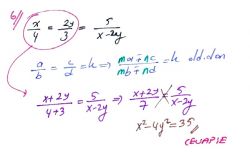 6/ x/4 = 2y/3 = 5/(x-2y)
a/b = c/d = k ⇒ (ma+nc)/(mb+nd) = k old.dan
(x+2y)/(4+3) = 5/(x-2y) ⇒ (x+2y)/7 = 5/(x-2y)
x²-4y² = 35
CEVAP E